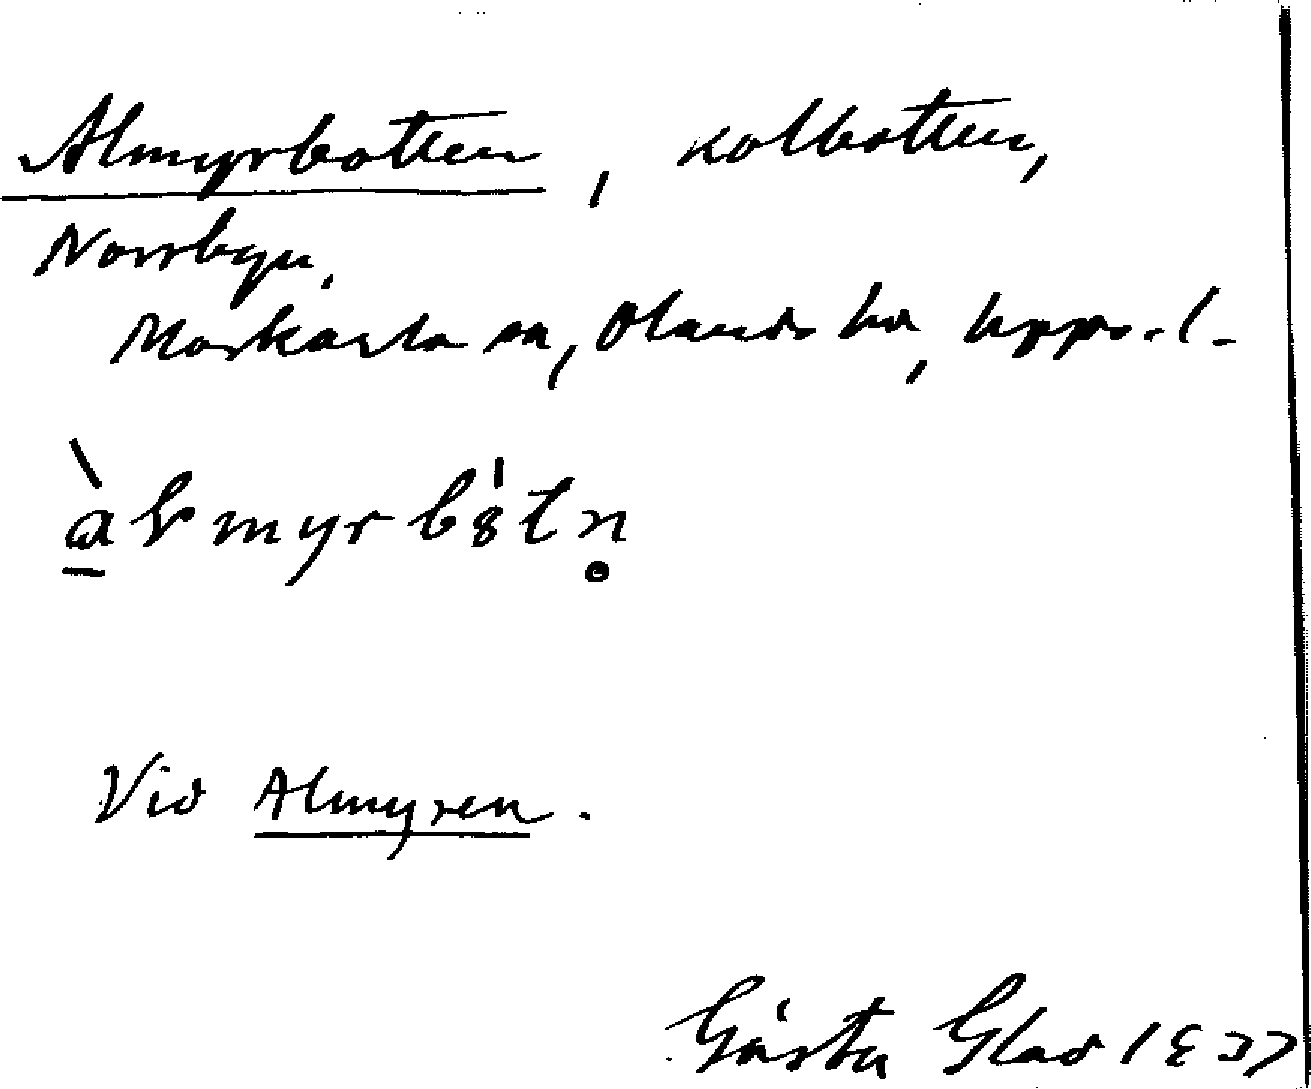 Almyrbotten, kolbotten,
Norrbyn,
Morkarla sn, Olands hd, Upps. l.
Vid Almyren.
Gösta Glad